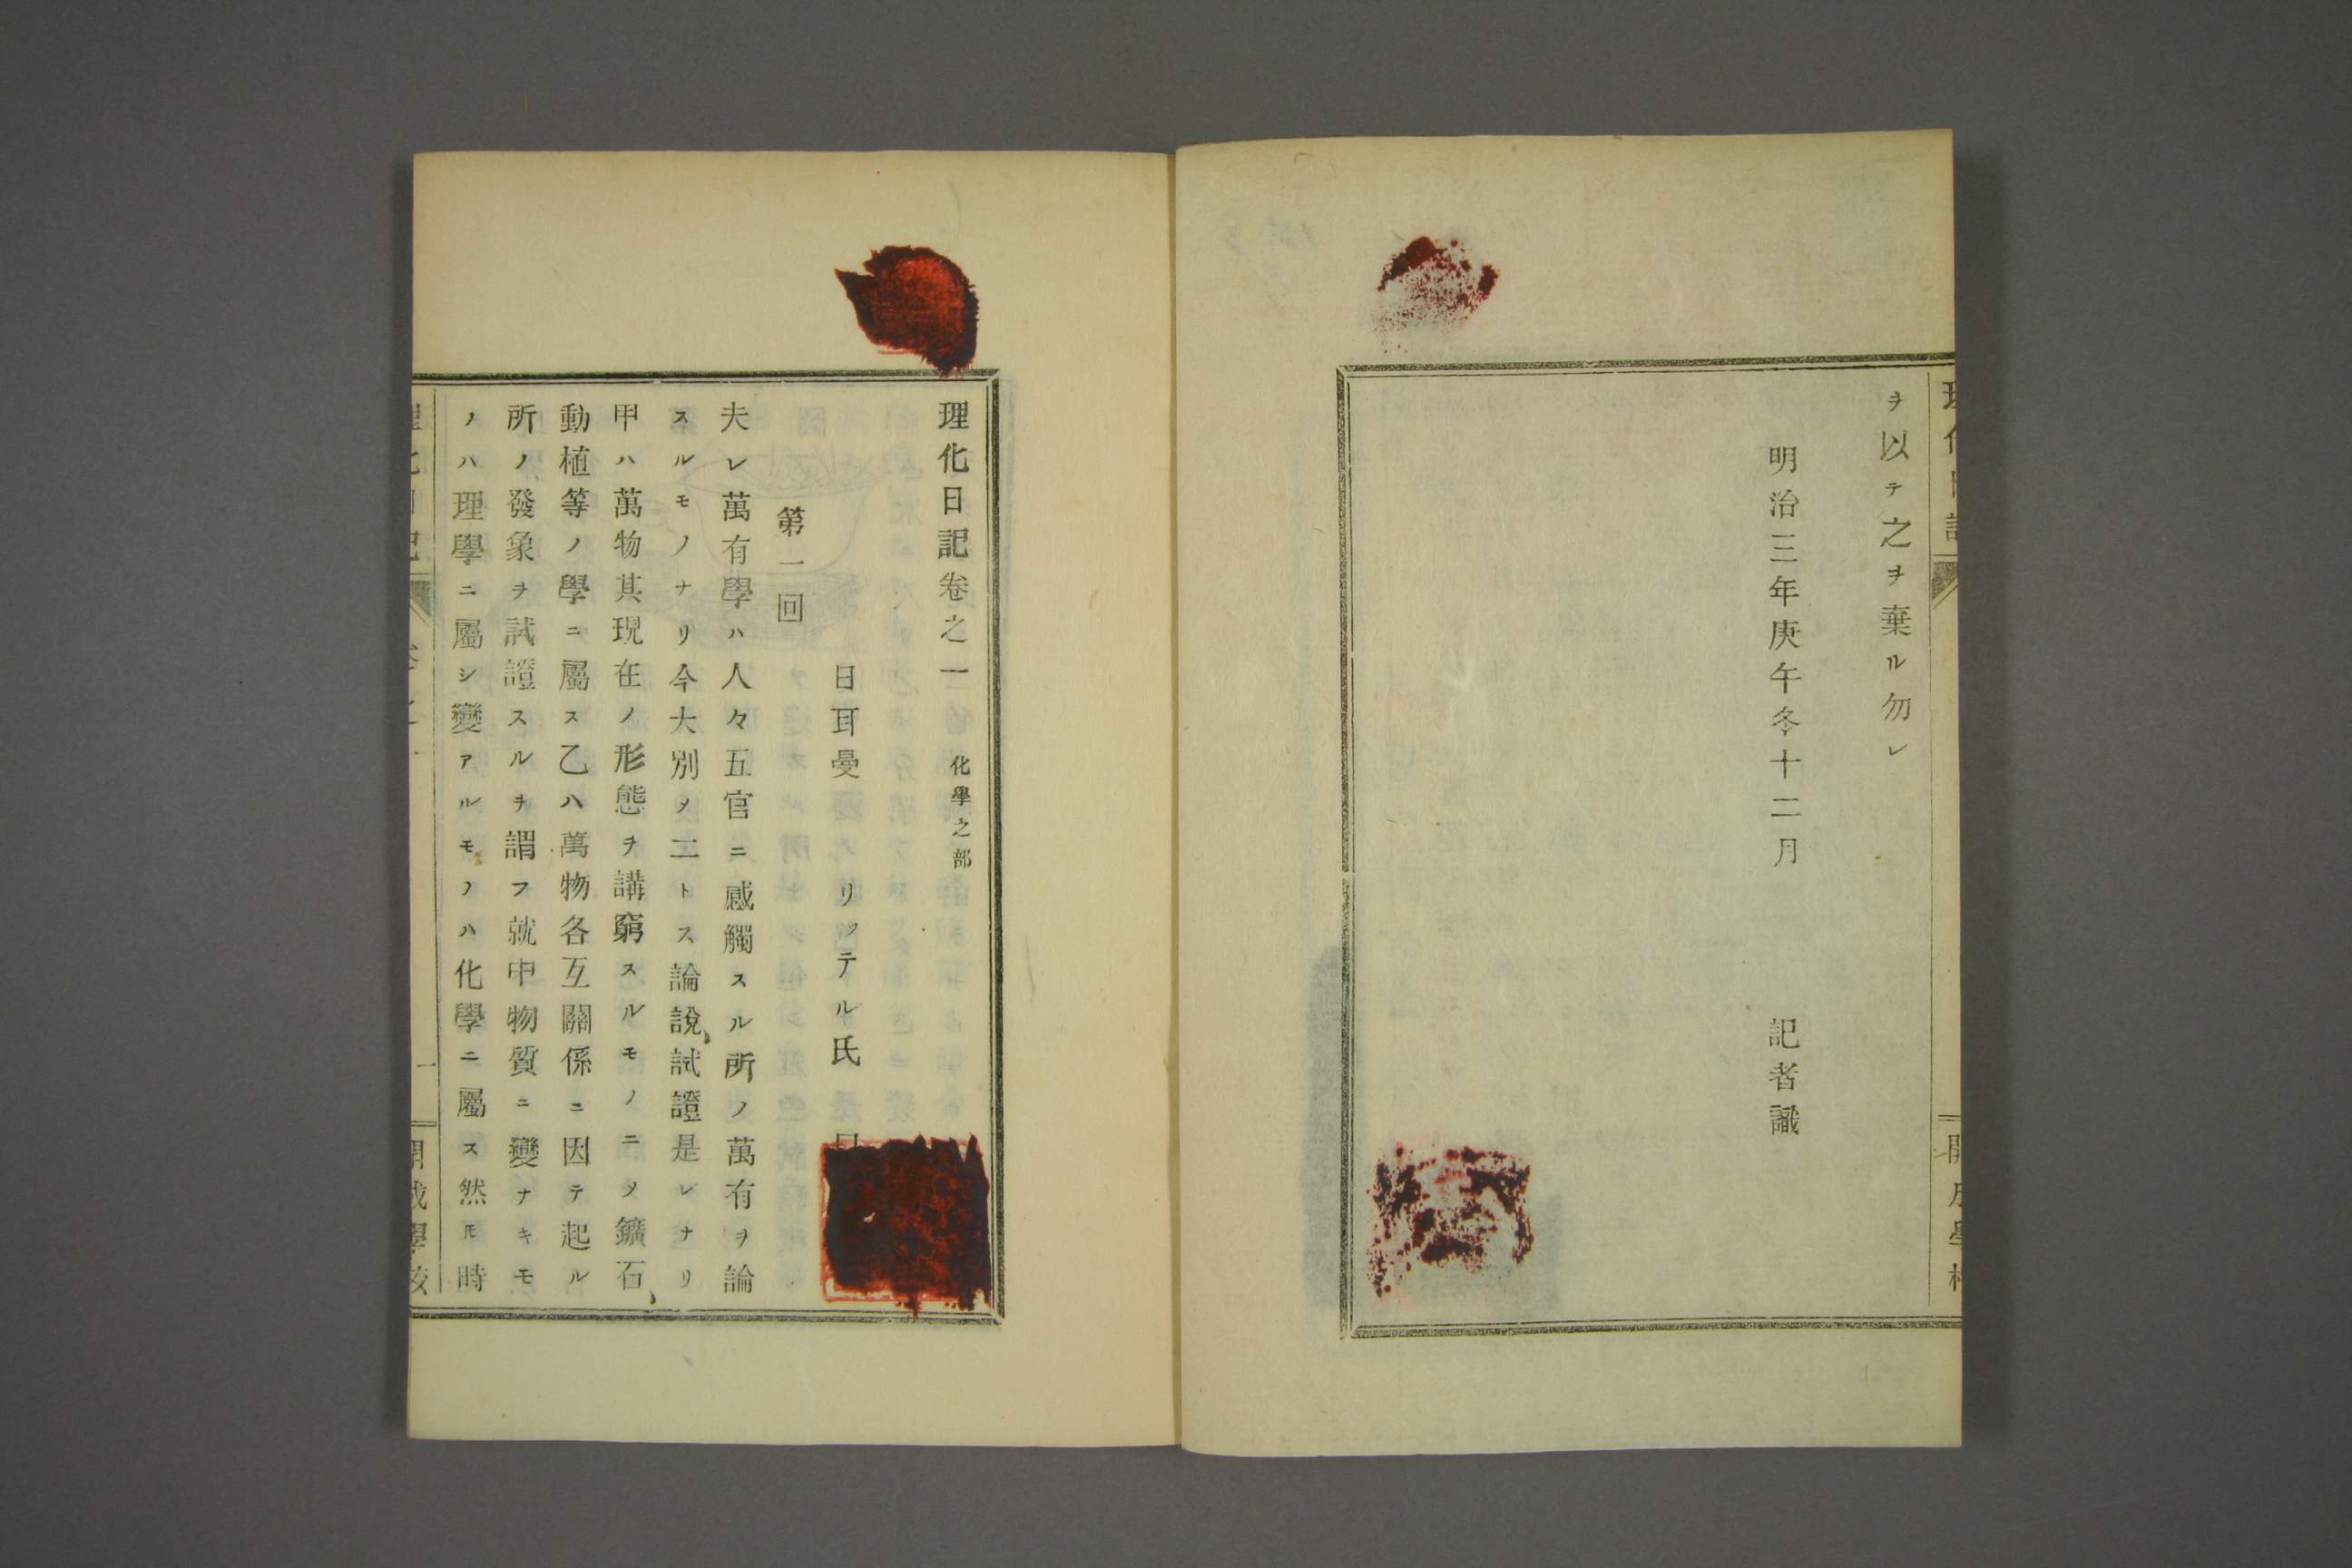 ヲ以テ之ヲ棄ル勿レ
明治三年庚午冬十二月　記者識
理化日記卷之一　化學之部
日耳曼　リッテル氏　口
第一回
夫レ萬有學ハ人々五官ニ感觸スル所ノ萬有ヲ論
スルモノナリ今大別メ二トス論說、試證是レナリ
甲ハ萬物其現在ノ形態ヲ講窮スルモノニメ鑛石、
動植等ノ學ニ屬ス乙ハ萬物各互關係ニ因テ起ル
所ノ發象ヲ試證スルヲ謂フ就中物質ニ變ナキモ
ノハ理學ニ屬シ變アルモノハ化學ニ屬ス然𪜈時